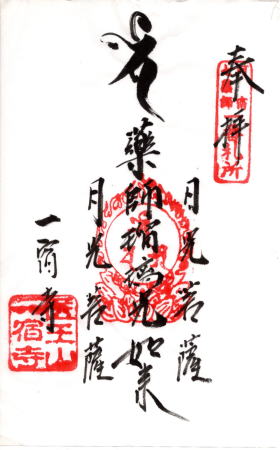 奉拝
日光菩薩
藥師瑠璃光如来
月光菩薩
一宿寺
医王山
一宿寺